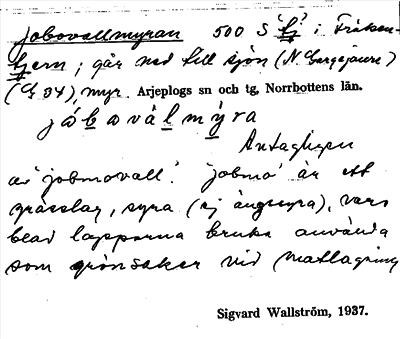 Jobovallmyran 500 S tj? i Fräken-
tjern; går ned till sjön (N. Gargejaure)
(G 34), myr. Arjeplogs sn och tg, Norrbottens län.
jåbavàlmỳra
Antagligen
av jobmovall. jobmo är ett
grässlag, syra (ej ängssyra), vars
blad lapparna bruka använda
som grönsaker vid matlagning
Sigvard Wallström, 1937.